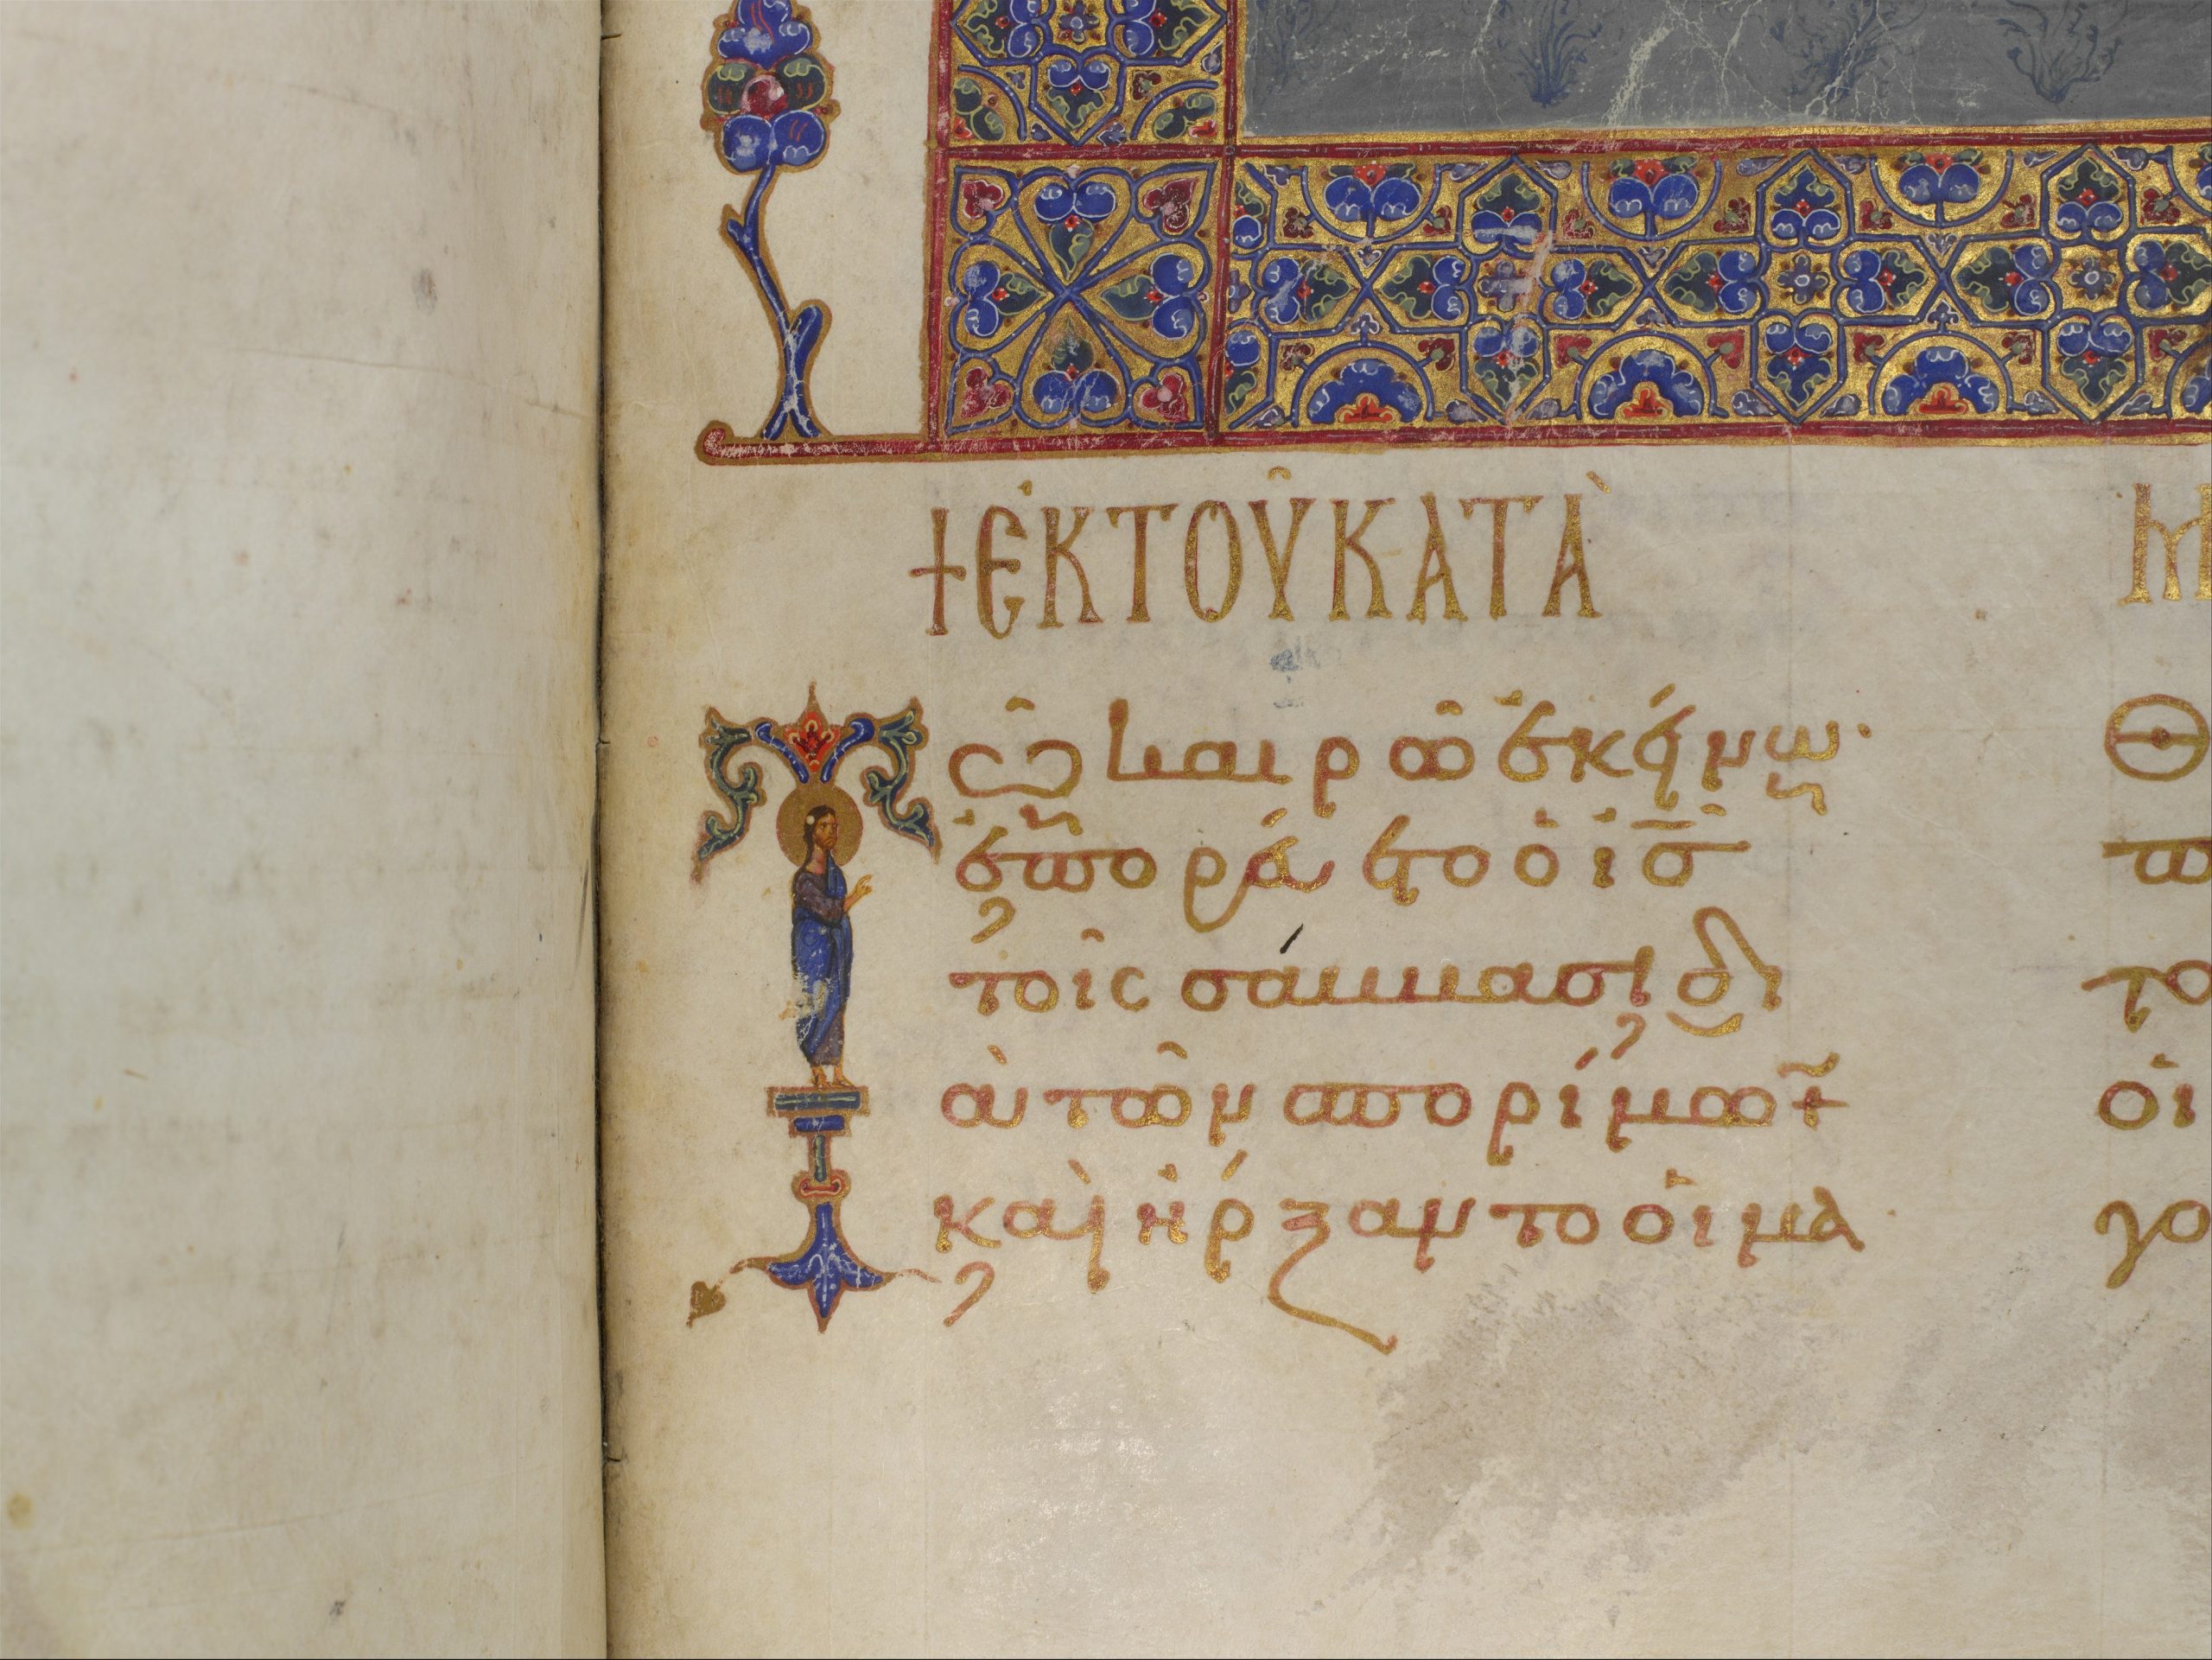 + ἘΚ ΤΟΥ͂ ΚΑΤᾺ Μ
Τῶ καιρῶ ἐκείνω·
ἐπορεύετο ὁ ις̅
τοῖς σάββασι δι
ὰ τῶν σπορίμων +
καὶ ἤρξαντο οἱ μα
Θ
π
το
οἱ
γο